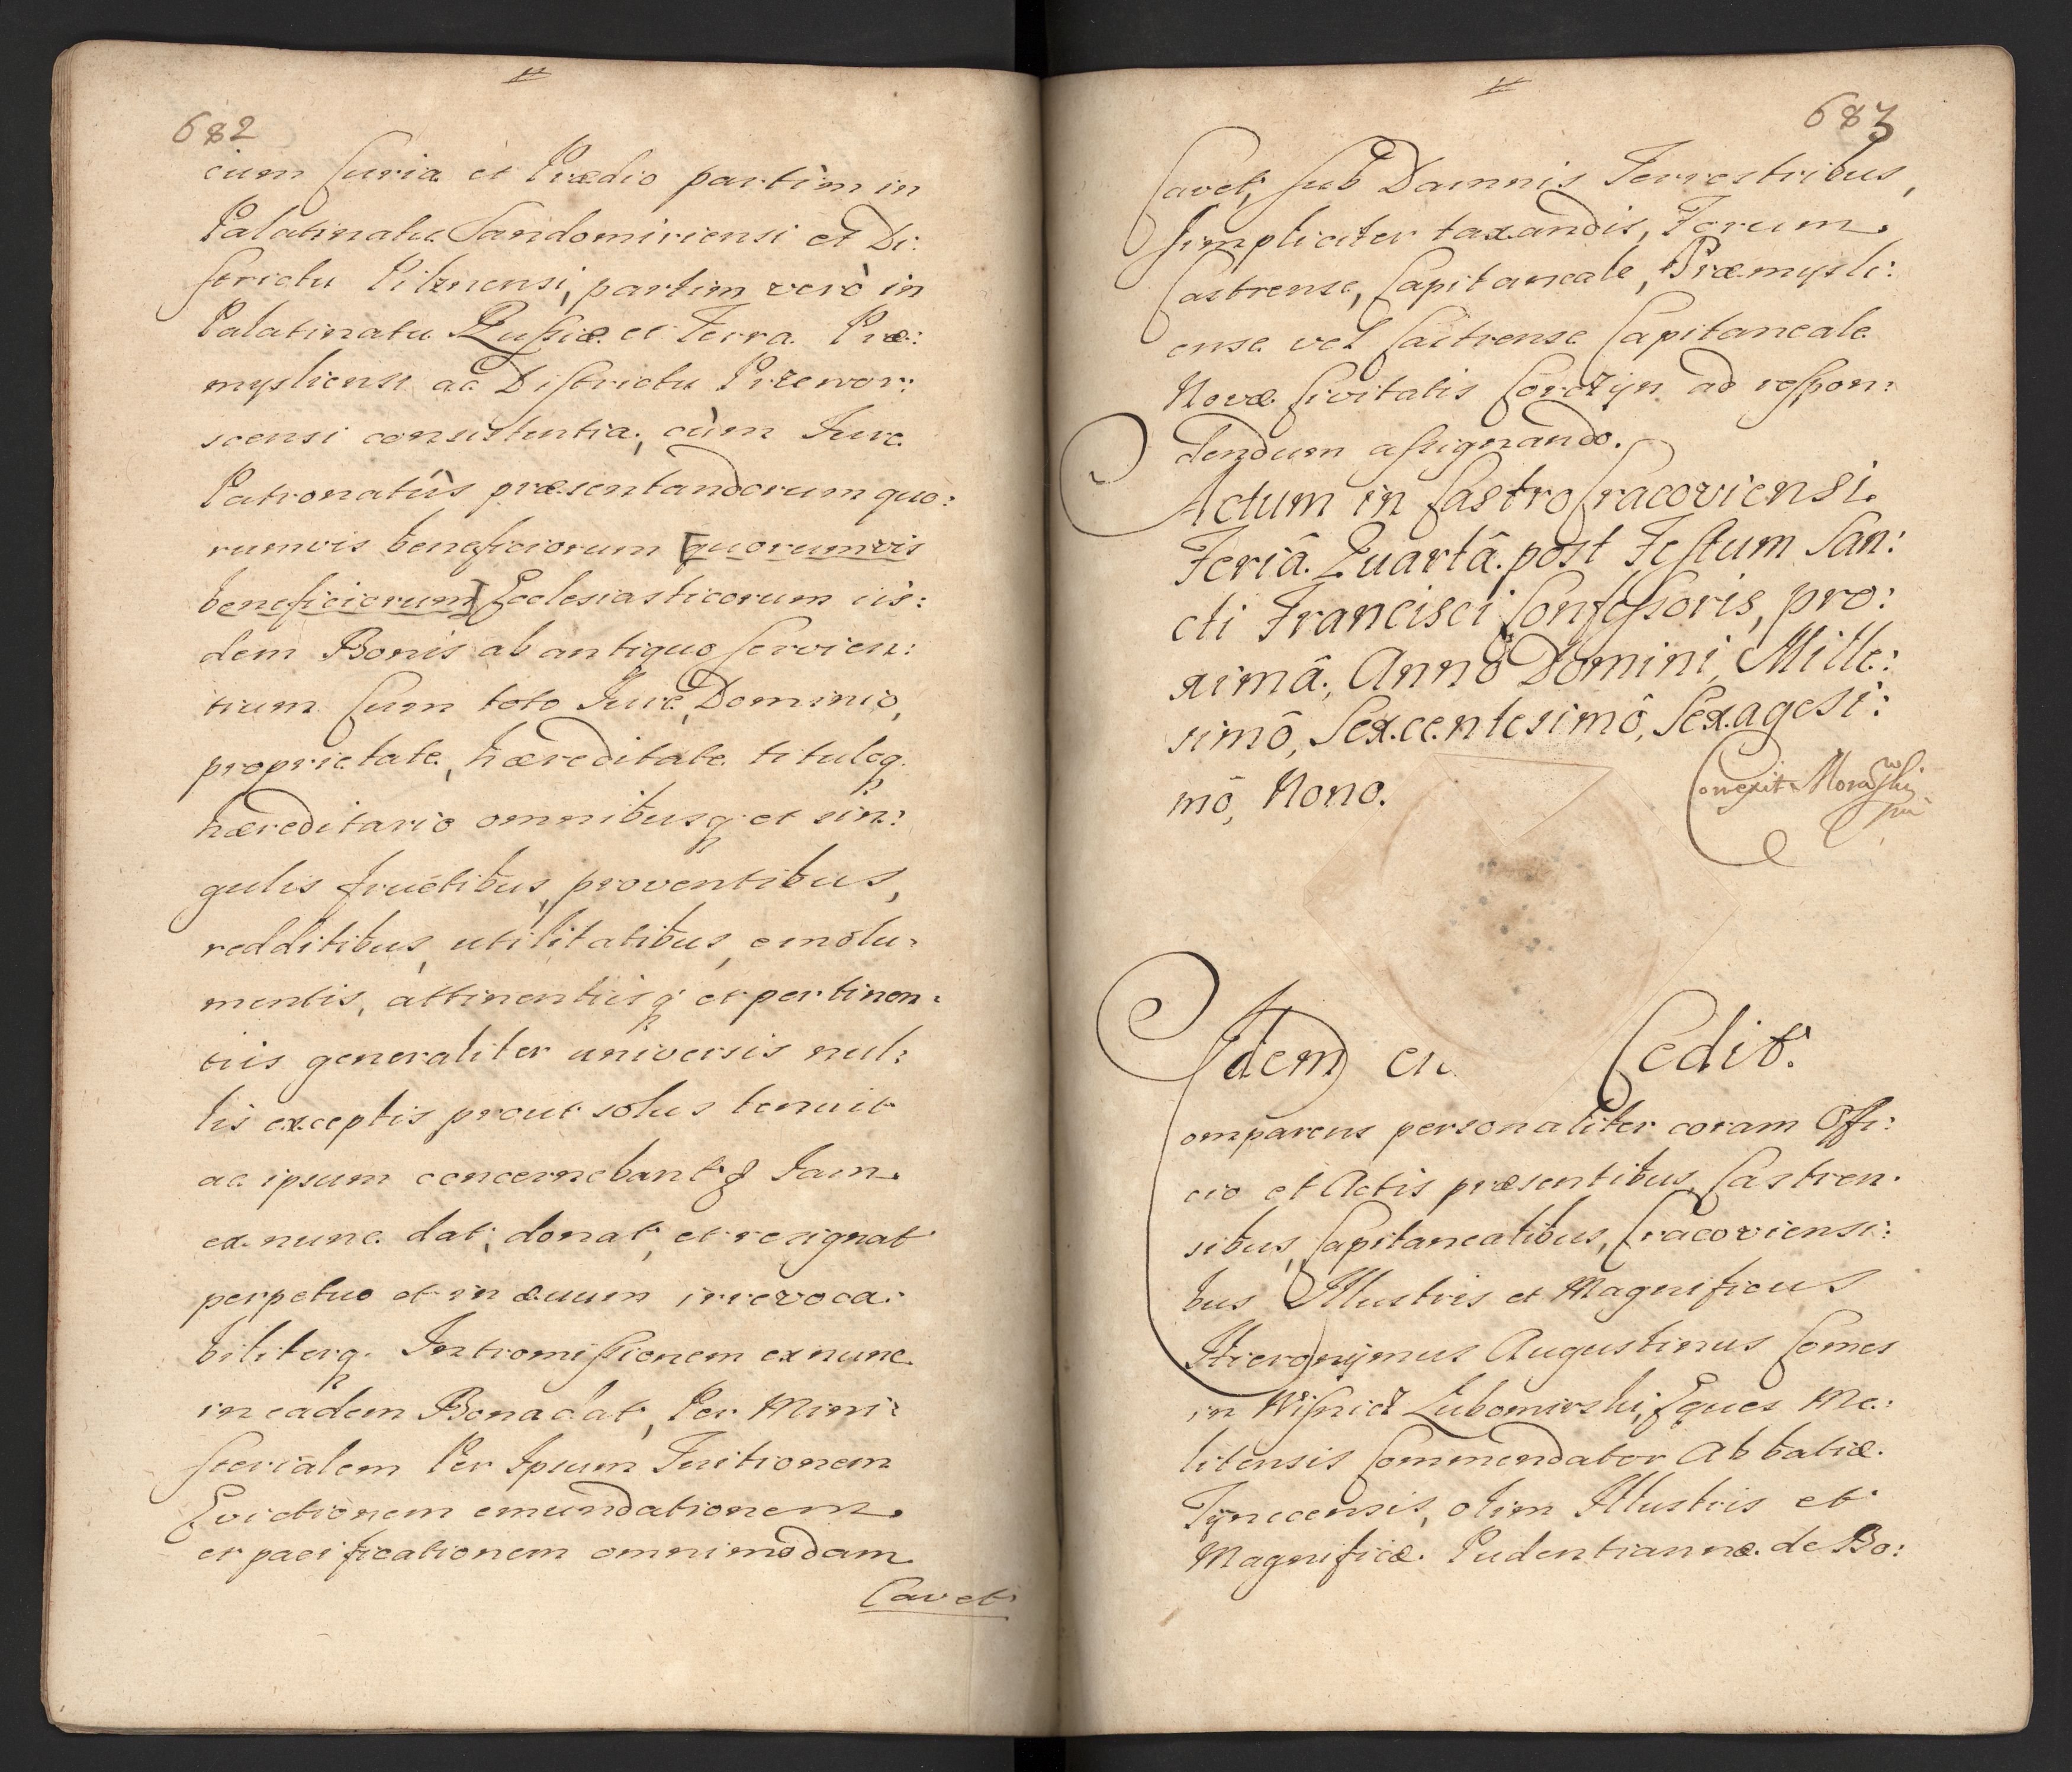 682
cum Curia et Prædio partim in
Palatinatu Sandomiriensi et Di:
strictu Pilznensi, partim verò in
Palatinatu Russiæ et Terra Præ:
mysliensi ac Districtu Przewor:
scensi consistentia, cùm Iure
Patronatûs præsentandorum quo:
rumvis beneficiorum [quorumvis
beneficiorum] Ecclesiasticorum iis:
dem Bonis ab antiquo servien:
tium Cum toto Iure, Dominio,
proprietate, hæreditate tituloq.
hæreditario omnibusq. et sin:
gulis fructibus, proventibus,
redditibus, utilitatibus, emolu:
mentis, attinentiisq. et pertinen:
tiis generaliter universis nul:
lis exceptis prout solus tenuit
ac ipsum concernebant & Iam
ex nunc dat, donat, et resignat
perpetuo et in ævum irrevoca:
biliterq. Intromissionem ex nunc
in eadem Bona dat, Per Mini:
sterialem Per Ipsum Tuitionem
Evictionem emundationem
et pacificationem omnimodam
Cavet
683
Cavet, sub Damnis Terrestribus,
simpliciter taxandis, Forum
Castrense, Capitaneale, Præmysli:
ense vel Castrense Capitaneale
Novæ Civitatis Corczÿn ad respon:
dendum assignando.
Actum in Castro Cracoviensi
Feriâ Quartâ post Festum San:
cti Francisci Confessoris, pro:
ximâ, Annô Domini Mille:
simô, Sexcentesimô, Sexagesi:
mô, Nono.
Correxit Morawski
mp
Idem ei Cedit.
Comparens personaliter coram Offi:
cio et Actis præsentibus Castren:
sibus, Capitanealibus, Cracoviensi:
bus Illustris et Magnificus
Hieronÿmus Augustinus Comes
in Wisnicz Lubomirski, Eques Me:
litensis Commendator Abbatiæ
Tÿnecensis, olim Illustris et
Magnificæ Pudentiannæ de Bo: